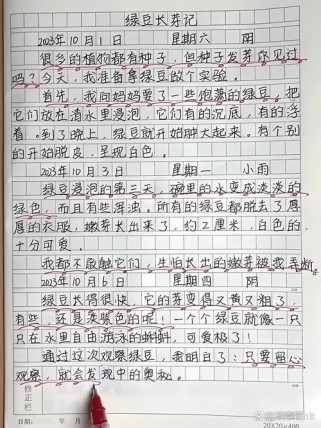 绿豆长芽记
2023年10月1日 星期六 阴
很多的植物都有种子，但种子发芽你见过
吗？今天，我准备拿绿豆做个实验。
首先，我向妈妈要了一些饱满的绿豆，把
它们放在清水里浸泡，它们有的沉底，有的浮
着。到了晚上，绿豆就开始肿大起来。有个别
的开始脱皮，呈现白色。
2023年10月3日 星期一 小雨
绿豆浸泡的第三天，碗里的水变成淡淡的
绿色，而且有些浑浊。所有的绿豆都脱去了厚
厚的衣服，嫩芽长出来了，约2厘米，白色的，
十分可爱。
我都不敢触它们，生怕长出的嫩芽被我弄断。
2023年10月6日 星期四 阴
绿豆长得很快，它的芽变得又黄又粗了，
有些，还是淡紫色的呢！一个个绿豆就像一只
只在水里自由游泳的蝌蚪，可爱极了！
通过这次观察绿豆，我明白了：只要留心
观察，就会发现中的奥秘。
修正栏
日期： 年 月
20X20=400